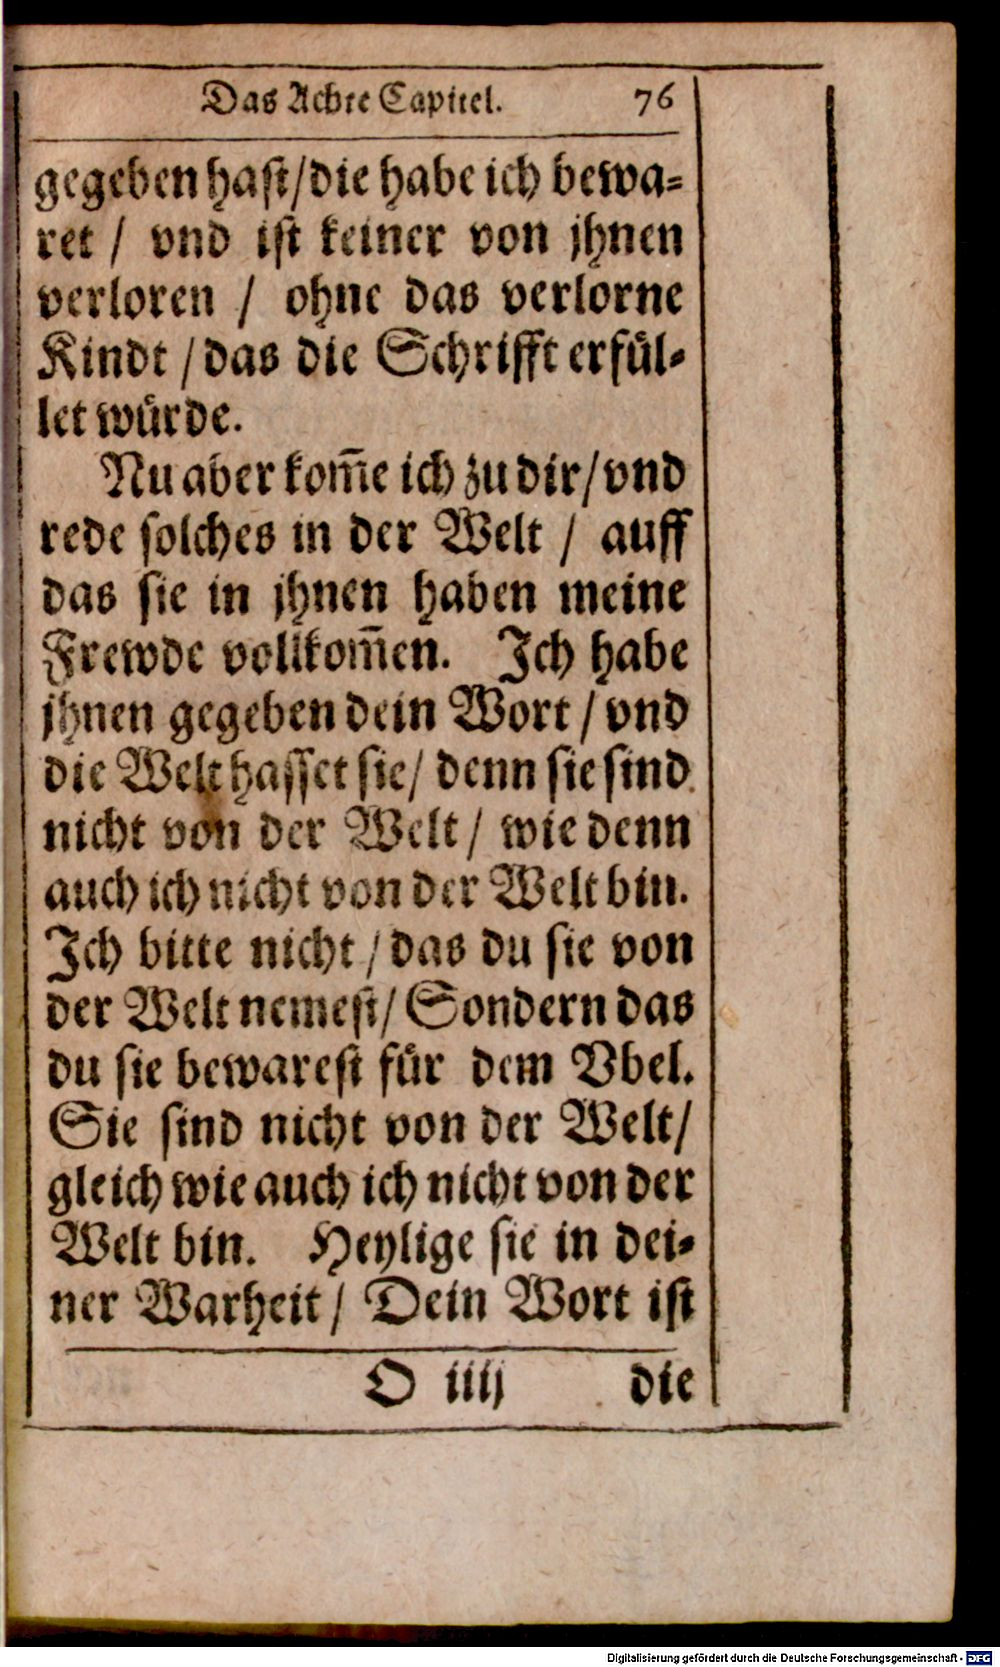 Das Achte Capitel. 76
gegeben hast/die habe ich bewa-
ret / vnd ist keiner von jhnen
verloren / ohne das verlorne
Kindt / das die Schrifft erfül-
let würde.
Nu aber kom̄e ich zu dir/vnd
rede solches in der Welt / auff
das sie in jhnen haben meine
Frewde vollkom̄en. Ich habe
jhnen gegeben dein Wort / vnd
die Welt hasset sie/ denn sie sind
nicht von der Welt/ wie denn
auch ich nicht von der Welt bin.
Ich bitte nicht / das du sie von
der Welt nemest/ Sondern das
du sie bewarest für dem Vbel.
Sie sind nicht von der Welt/
gleich wie auch ich nicht von der
Welt bin. Heylige sie in dei-
ner Warheit/ Dein Wort ist
O iiij die
Digitalisierung gefördert durch die Deutsche Forschungsgemeinschaft - DFG